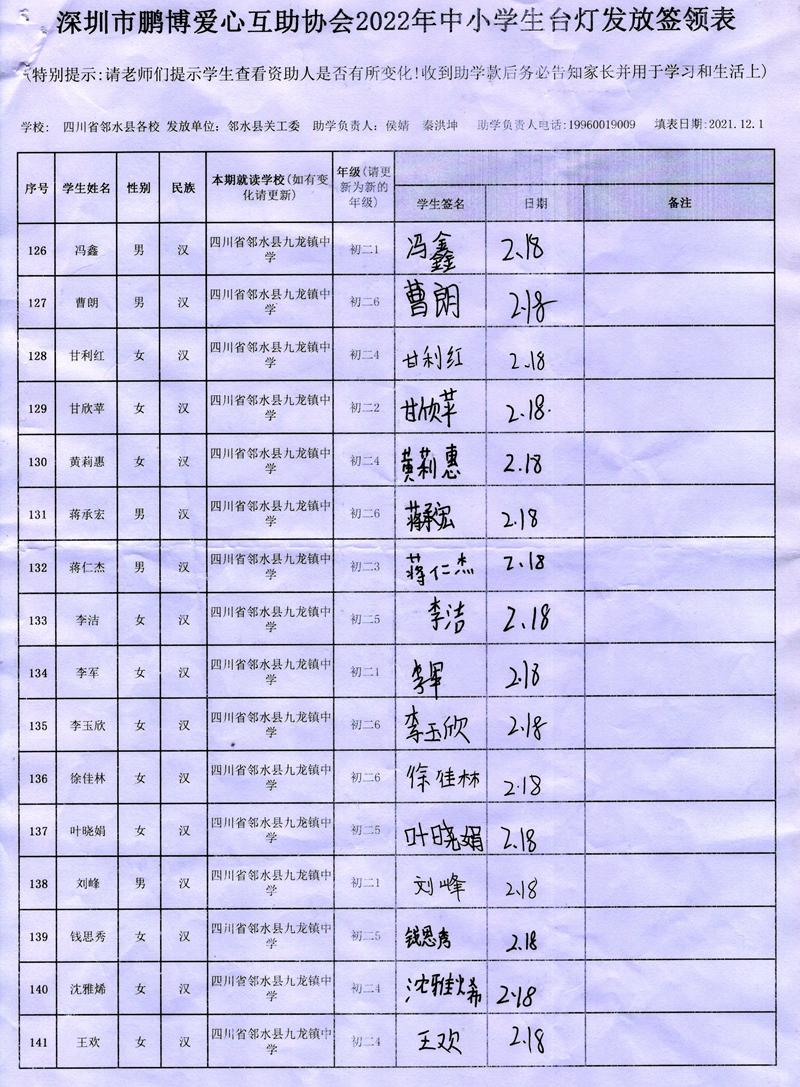 深圳市鹏博爱心互助协会2022年中小学生台灯发放签领表
(特别提示:请老师们提示学生查看资助人是否有所变化!收到助学款后务必告知家长并用于学习和生活上)
学校: 四川省邻水县各校 发放单位: 邻水县关工委 助学负责人: 侯婧 秦洪坤 助学负责人电话:19960019009 填表日期:2021.12.1
序号 学生姓名 性别 民族 本期就读学校(如有变化请更新) 年级(请更新为新的年级) 学生签名 日期 备注
126 冯鑫 男 汉 四川省邻水县九龙镇中学 初二1 冯鑫 2.18
127 曹朗 男 汉 四川省邻水县九龙镇中学 初二6 曹朗 2.18
128 甘利红 女 汉 四川省邻水县九龙镇中学 初二4 甘利红 2.18
129 甘欣苹 女 汉 四川省邻水县九龙镇中学 初二2 甘欣苹 2.18.
130 黄莉惠 女 汉 四川省邻水县九龙镇中学 初二4 黄莉惠 2.18
131 蒋承宏 男 汉 四川省邻水县九龙镇中学 初二6 蒋承宏 2.18
132 蒋仁杰 男 汉 四川省邻水县九龙镇中学 初二3 蒋仁杰 2.18
133 李洁 女 汉 四川省邻水县九龙镇中学 初二5 李洁 2.18
134 李军 女 汉 四川省邻水县九龙镇中学 初二1 李军 2.18
135 李玉欣 女 汉 四川省邻水县九龙镇中学 初二6 李玉欣 2.18
136 徐佳林 女 汉 四川省邻水县九龙镇中学 初二6 徐佳林 2.18
137 叶晓娟 女 汉 四川省邻水县九龙镇中学 初二5 叶晓娟 2.18
138 刘峰 男 汉 四川省邻水县九龙镇中学 初二1 刘峰 2.18
139 钱思秀 女 汉 四川省邻水县九龙镇中学 初二5 钱思秀 2.18
140 沈雅烯 女 汉 四川省邻水县九龙镇中学 初二4 沈雅烯 2.18
141 王欢 女 汉 四川省邻水县九龙镇中学 初二4 王欢 2.18